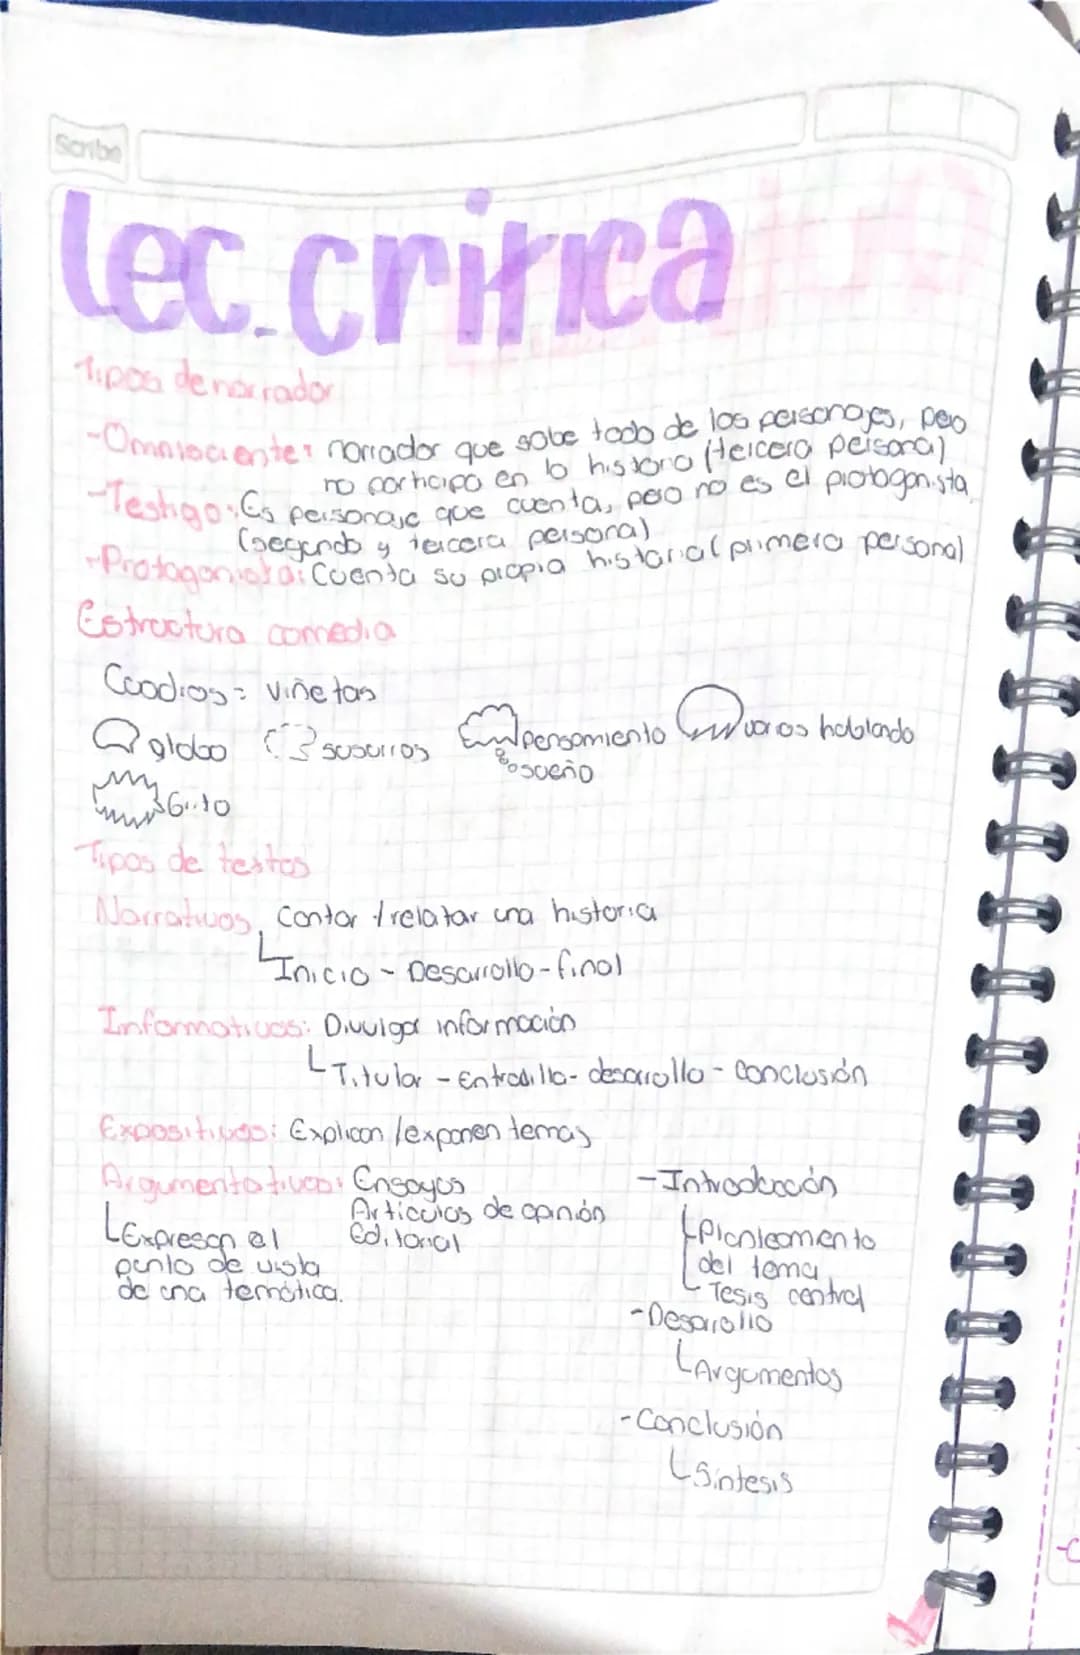 Scribe
Lec. critica
Tipos de narrador
-Omnisciente: narrador que sabe todo de los personajes, pero
no participa en la historia (tercera persona)
-Testigo: Es personaje que cuenta, pero no es el protagonista
(segunda y tercera persona)
-Protagonista: Cuenta su propia historia (primera persona)
Estructura comedia
Cuadros = viñetas
globo susurros pensamiento varios hablando
sueño
Grito
Tipos de textos
Narrativos, contar / relatar una historia
Inicio - Desarrollo - final
Informativos: Divulgar información
Titular - Entradilla - desarrollo - conclusión
Expositivos: Explican / exponen temas
Argumentativos: Ensayos
Articulos de opinión
Editorial
Expresan el
punto de vista
de una temática.
-Introducción
Planteamiento
del tema
Tesis central
-Desarrollo
Argumentos
-Conclusión
Síntesis